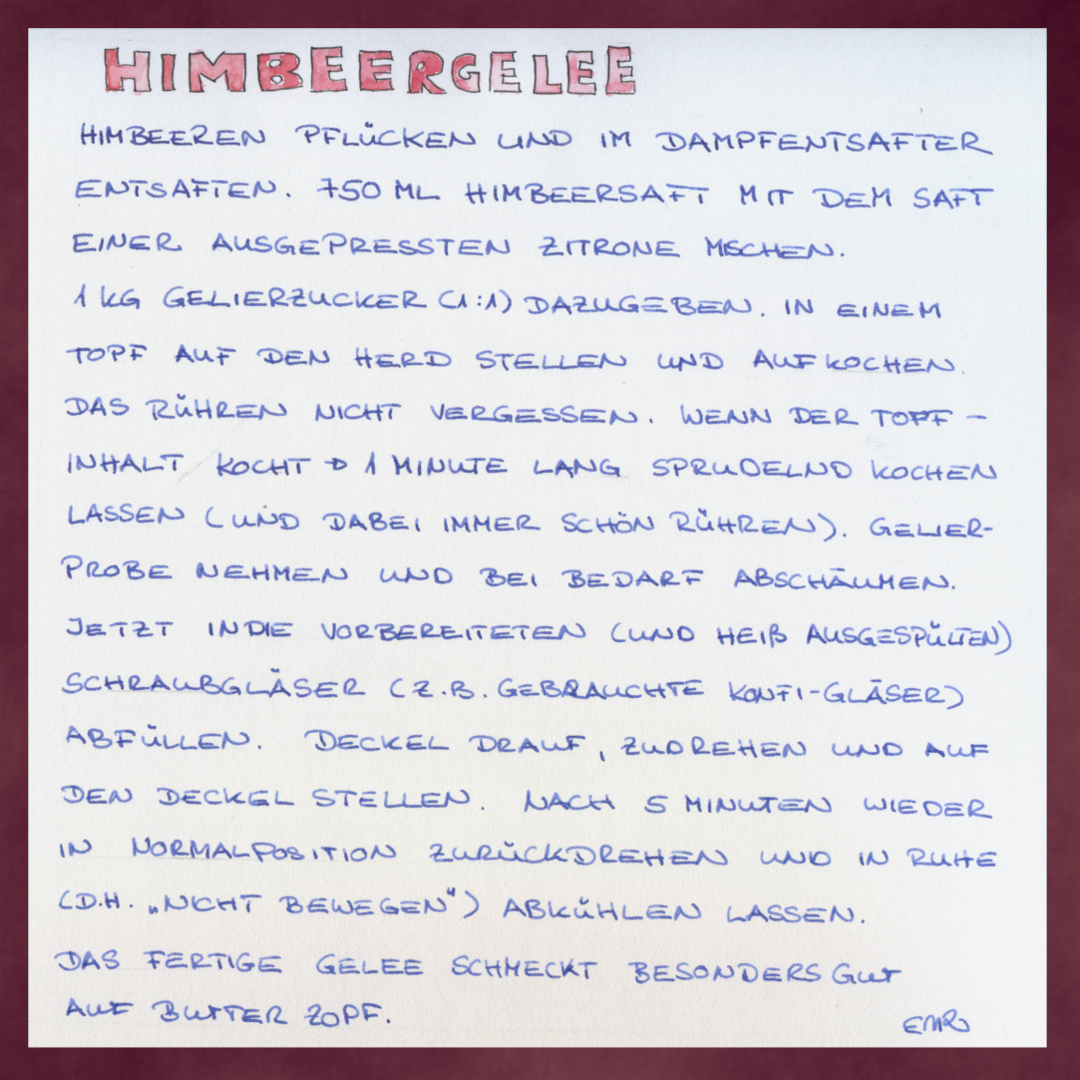 HIMBEERGELEE
HIMBEEREN PFLÜCKEN UND IM DAMPFENTSAFTER
ENTSAFTEN. 750 ML HIMBEERSAFT MIT DEM SAFT
EINER AUSGEPRESSTEN ZITRONE MISCHEN.
1 KG GELIERZUCKER (1:1) DAZUGEBEN. IN EINEM
TOPF AUF DEN HERD STELLEN UND AUFKOCHEN.
DAS RÜHREN NICHT VERGESSEN. WENN DER TOPF –
INHALT KOCHT → 1 MINUTE LANG SPRUDELND KOCHEN
LASSEN (UND DABEI IMMER SCHÖN RÜHREN). GELIER-
PROBE NEHMEN UND BEI BEDARF ABSCHÄUMEN.
JETZT IN DIE VORBEREITETEN (UND HEIß AUSGESPÜLTEN)
SCHRAUBGLÄSER (Z.B. GEBRAUCHTE KONFI-GLÄSER)
ABFÜLLEN. DECKEL DRAUF, ZUDREHEN UND AUF
DEN DECKEL STELLEN. NACH 5 MINUTEN WIEDER
IN NORMALPOSITION ZURÜCKDREHEN UND IN RUHE
(D.H. „NICHT BEWEGEN") ABKÜHLEN LASSEN.
DAS FERTIGE GELEE SCHMECKT BESONDERS GUT
AUF BUTTERZOPF.